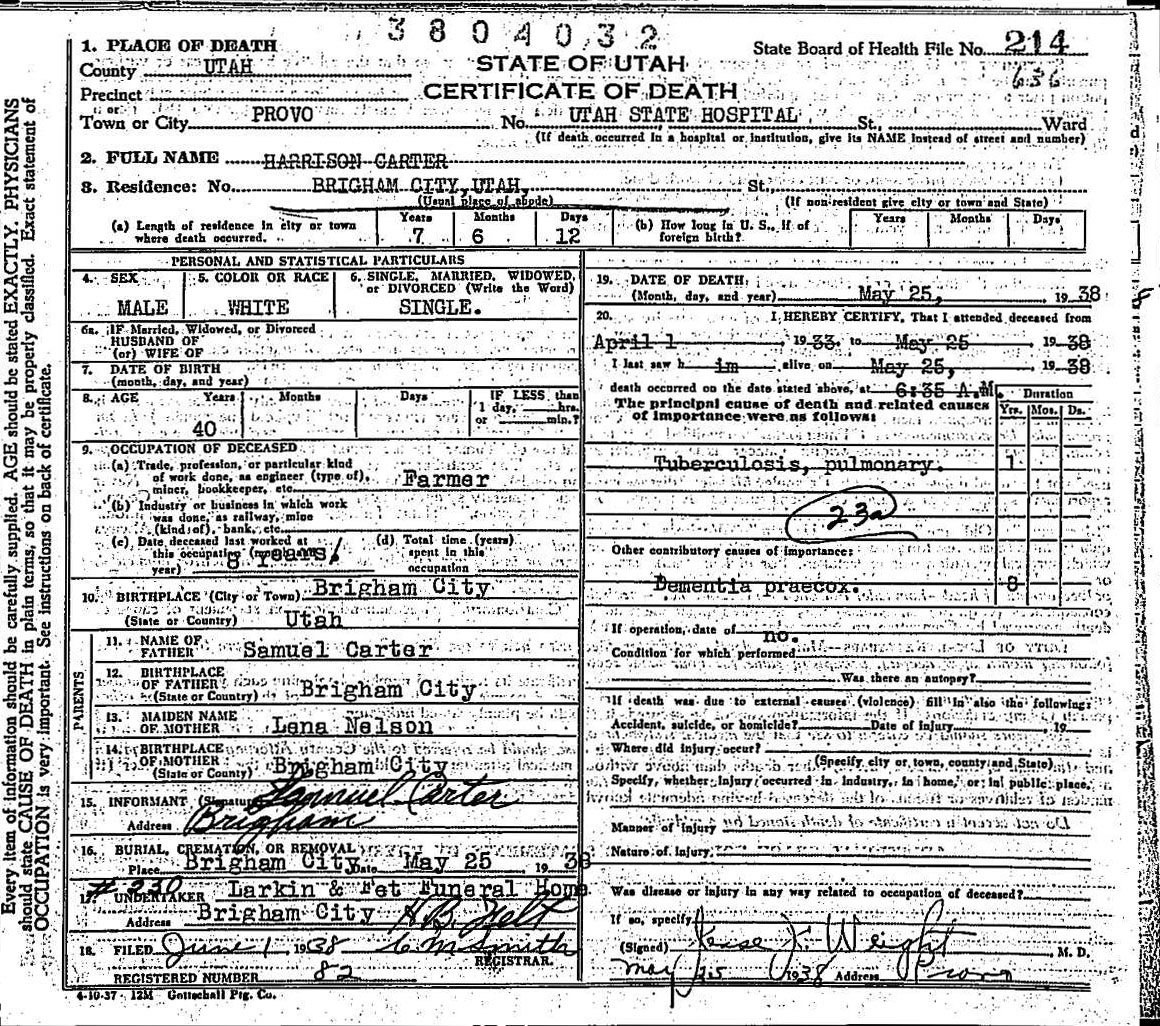 3804032
1. PLACE OF DEATH
State Board of Health File No. 214
County UTAH
STATE OF UTAH
636
Precinct
CERTIFICATE OF DEATH
or
Town or City PROVO No. UTAH STATE HOSPITAL St., Ward
(If death occurred in a hospital or institution, give its NAME instead of street and number)
2. FULL NAME HARRISON CARTER
3. Residence: No. BRIGHAM CITY, UTAH, St.
(Usual place of abode) (If non-resident give city or town and State)
(a) Length of residence in city or town where death occurred. Years 7 Months 6 Days 12
(b) How long in U. S., if of foreign birth? Years Months Days
PERSONAL AND STATISTICAL PARTICULARS
4. SEX MALE
5. COLOR OR RACE WHITE
6. SINGLE, MARRIED, WIDOWED, or DIVORCED (Write the Word) SINGLE.
6a. IF Married, Widowed, or Divorced
HUSBAND OF
(or) WIFE OF
7. DATE OF BIRTH
(month, day, and year)
8. AGE Years 40 Months Days IF LESS than 1 day, hrs. or min.?
9. OCCUPATION OF DECEASED
(a) Trade, profession, or particular kind
of work done, as engineer (type of), Farmer
miner, bookkeeper, etc.
(b) Industry or business in which work
was done, as railway, mine
(kind of), bank, etc.
(c) Date deceased last worked at
this occupation
year) 8 Years
(d) Total time (years)
spent in this
occupation
10. BIRTHPLACE (City or Town) Brigham City
(State or Country) Utah
PARENTS
11. NAME OF
FATHER Samuel Carter
12. BIRTHPLACE
OF FATHER
(State or Country) Brigham City
13. MAIDEN NAME
OF MOTHER Lena Nelson
14. BIRTHPLACE
OF MOTHER
(State or Country) Brigham City
15. INFORMANT (Signature) Samuel Carter
Address Brigham
16. BURIAL, CREMATION, OR REMOVAL
Place Brigham City Date May 25 1938
# 230
17. UNDERTAKER Larkin & Fet Funeral Home
Address Brigham City H B Felt
18. FILED June 1 1938 C M Smith
REGISTRAR.
REGISTERED NUMBER 82
4-10-37 12M Gottschall Ptg. Co.
19. DATE OF DEATH
(Month, day, and year) May 25, 1938
20. I HEREBY CERTIFY, That I attended deceased from
April 1, 1933 to May 25, 1938
I last saw him alive on May 25, 1938
death occurred on the date stated above, at 6:35 A.M.
The principal cause of death and related causes
of importance were as follows:
Duration
Yrs. Mos. Ds.
Tuberculosis, pulmonary. 1
23a
Other contributory causes of importance:
Dementia praecox. 8
If operation, date of no.
Condition for which performed
Was there an autopsy?
If death was due to external causes (violence) fill in also the following:
Accident, suicide, or homicide? Date of injury 19
Where did injury occur?
(Specify city or town, county and State)
Specify, whether injury occurred in industry, in home, or in public place.
Manner of injury
Nature of injury
Was disease or injury in any way related to occupation of deceased?
If so, specify
(Signed) Jesse J. Weight M. D.
May 25 1938 Address Provo
Every item of information should be carefully supplied. AGE should be stated EXACTLY. PHYSICIANS
should state CAUSE OF DEATH in plain terms, so that it may be properly classified. Exact statement of
OCCUPATION is very important. See instructions on back of certificate.